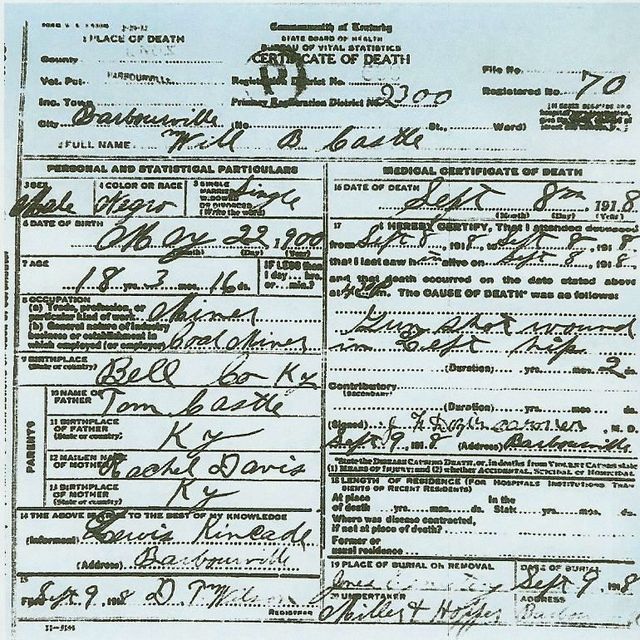 Commonwealth of Kentucky
STATE BOARD OF HEALTH
BUREAU OF VITAL STATISTICS
CERTIFICATE OF DEATH
1 PLACE OF DEATH
County KNOX
Vot. Pct. BARBOURVILLE Registration District No.
File No.
Inc. Town Primary Registration District No. 2300 Registered No. 70
City Barbourville (No. St., Ward)
2 FULL NAME Will B Castle
PERSONAL AND STATISTICAL PARTICULARS
3 SEX Male
4 COLOR OR RACE Negro
5 SINGLE MARRIED WIDOWED OR DIVORCED (Write the word) Single
6 DATE OF BIRTH May 22, 1900
(Month) (Day) (Year)
7 AGE 18 yrs. 3 mos. 16 ds.
IF LESS than 1 day... hrs. or... min.?
8 OCCUPATION
(a) Trade, profession, or particular kind of work Miner
(b) General nature of industry business or establishment in which employed (or employer) Coal Miner
9 BIRTHPLACE (State or country) Bell Co Ky
PARENTS
10 NAME OF FATHER Tom Castle
11 BIRTHPLACE OF FATHER (State or country) Ky
12 MAIDEN NAME OF MOTHER Rachel Davis
13 BIRTHPLACE OF MOTHER (State or country) Ky
14 THE ABOVE IS TRUE TO THE BEST OF MY KNOWLEDGE
(Informant) Lewis Kincade
(Address) Barbourville
15
Filed Sept 9, 1918 D T Wilson
REGISTRAR
11-3184
MEDICAL CERTIFICATE OF DEATH
16 DATE OF DEATH Sept 8th, 1918
(Month) (Day) (Year)
17 I HEREBY CERTIFY, That I attended deceased
from Sept 8, 1918 to Sept 8, 1918
that I last saw him alive on Sept 8, 1918
and that death occurred on the date stated above
at m. The CAUSE OF DEATH* was as follows:
Gun shot wound
in Left hip
(Duration) yrs. mos. 2 ds.
Contributory
(SECONDARY)
(Duration) yrs. mos. ds.
(Signed) M. D.
Sept 9, 1918 (Address) Barbourville
*State the DISEASE CAUSING DEATH, or, in deaths from VIOLENT CAUSES state (1) MEANS OF INJURY; and (2) whether ACCIDENTAL, SUICIDAL or HOMICIDAL
18 LENGTH OF RESIDENCE (FOR HOSPITALS INSTITUTIONS TRANSIENTS OR RECENT RESIDENTS)
At place of death yrs. mos. ds. In the State yrs. mos. ds.
Where was disease contracted, if not at place of death?
Former or usual residence
19 PLACE OF BURIAL OR REMOVAL Jones Cemetery
DATE OF BURIAL Sept 9, 1918
20 UNDERTAKER Miller & Hopper
ADDRESS